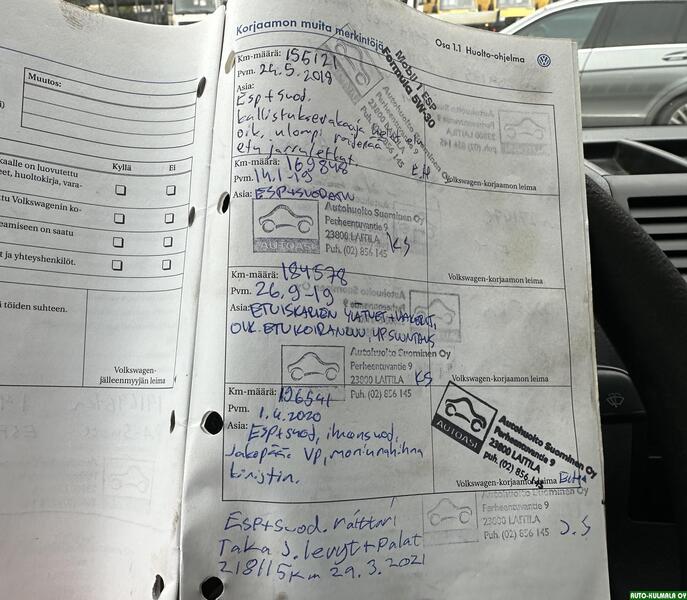 Korjaamon muita merkintöjä
Osa 1.1 Huolto-ohjelma
Muutos:
Kyllä Ei
kaalle on luovutettu
eet, huoltokirja, vara-
ttu Volkswagenin ko-
eamiseen on saatu
t ja yhteyshenkilöt.
töiden suhteen.
Volkswagen-
jälleenmyyjän leima
Km-määrä: 155121
Pvm. 24.5.2018
Asia:
Esp+suod.
kallistuksenvakaaja
oik, ulompi
etu jarruletkut
Mobil 1 ESP
Formula 5W-30
Autohuolto Suominen Oy
Perheentuvantie 9
23800 LAITILA
Volkswagen-korjaamon leima
Km-määrä: 169848
Pvm. 14.1-19
Asia: ESP+SUODATIN
AUTOASI
Autohuolto Suominen Oy
Perheentuvantie 9
23800 LAITILA
Puh. (02) 856 145
KS
Volkswagen-korjaamon leima
Km-määrä: 184578
Pvm. 26.9-19
Asia: ETUISKARIEN YLÄTUET+LAAKERIT,
OIK. ETUKOIRANLUU,
Autohuolto Suominen Oy
Perheentuvantie 9
23800 LAITILA
Puh. (02) 856 145
KS
Volkswagen-korjaamon leima
Km-määrä: 196541
Pvm. 1.4.2020
Asia: Esp+suod, ilmansuod,
Jakopää, VP, moniurahihna
kiristin.
AUTOASI
Autohuolto Suominen Oy
Perheentuvantie 9
23800 LAITILA
puh. (02) 856 145
Volkswagen-korjaamon leima
Esp+suod.
Taka J. levyt+palat
218115km 29.3.2021
Autohuolto Suominen Oy
Perheentuvantie 9
23800 LAITILA
Puh. (02) 856 145
J.S
AUTO-KULMALA OY